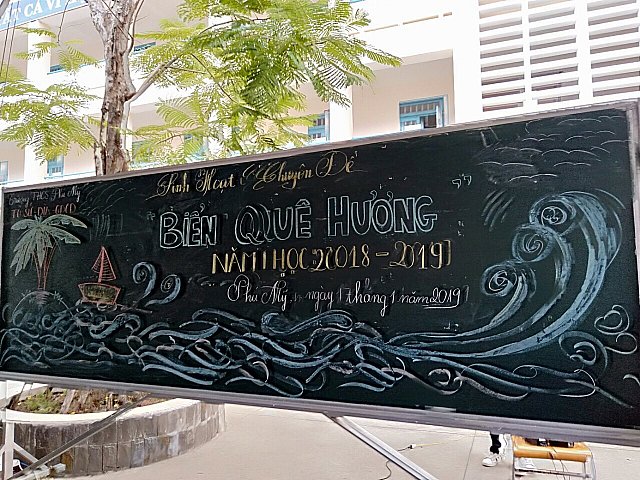 Trường THCS Phú Mỹ
TỔ SỬ-ĐỊA-GDCD
Sinh Hoạt Chuyên Đề
BIỂN QUÊ HƯƠNG
NĂM HỌC 2018-2019
Phú Mỹ, ngày 1 tháng 1 năm 2019